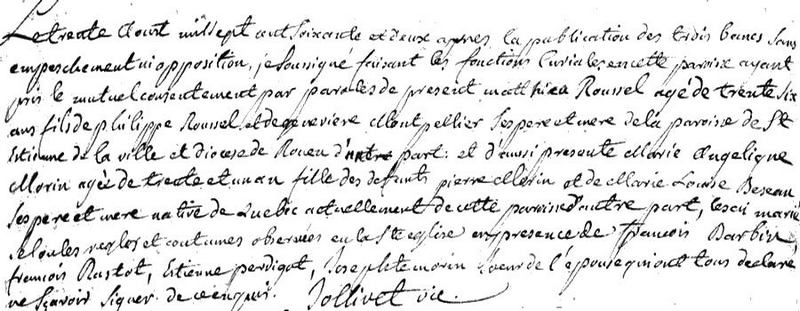 Le trente Aoust mil sept cent soixante et deux apres la publication des trois bancs sans
empeschement ni opposition, je soussigné faisant les fonctions Curiales en cette paroisse ayant
pris le mutuel consentement par paroles de present matthieu Roussel agé de trente six
ans fils de philippe Roussel et de genevieve Montpellier ses pere et mere de la paroisse de St
Estienne de la ville et diocese de Rouen d'autre part: et d'aussi presente Marie Angelique
Morin agée de trente et un an fille des defunts pierre Morin et de Marie Louise
ses pere et mere native de Quebec actuellement de cette paroisse d'autre part, les ai marié
selon les regles et coutumes observées en la Ste eglise en presence de francois Barbier
francois Rastot, Estienne perdigot, Josephte morin soeur de l'epouse qui ont tous declaré
ne sçavoir signer de ce enquis. Jollivet